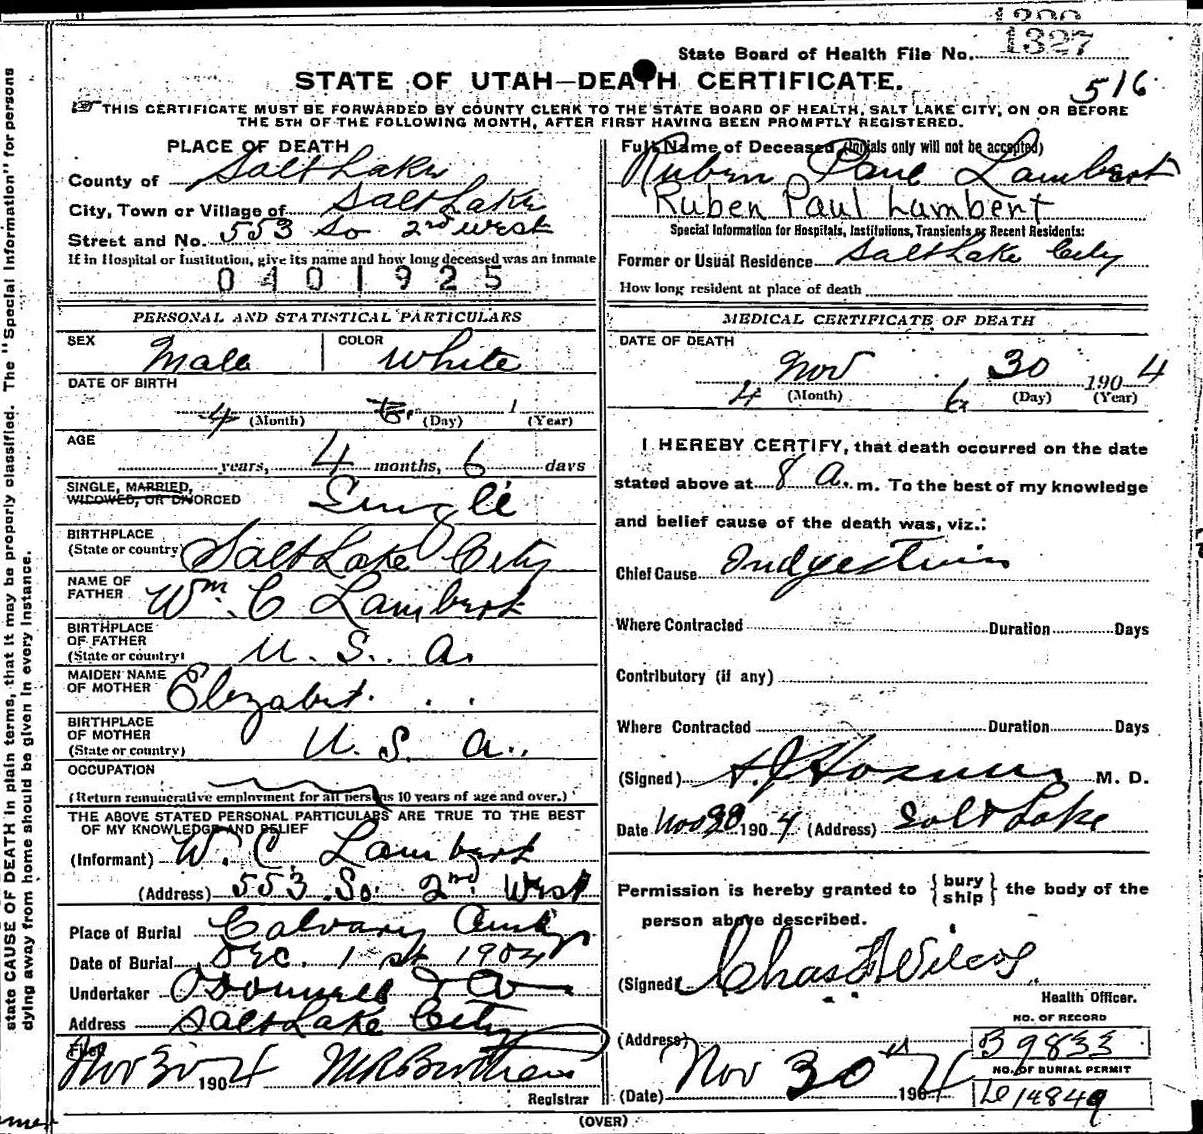 1327
State Board of Health File No.
STATE OF UTAH—DEATH CERTIFICATE.
516
THIS CERTIFICATE MUST BE FORWARDED BY COUNTY CLERK TO THE STATE BOARD OF HEALTH, SALT LAKE CITY, ON OR BEFORE
THE 5TH OF THE FOLLOWING MONTH, AFTER FIRST HAVING BEEN PROMPTLY REGISTERED.
state CAUSE OF DEATH in plain terms, that it may be properly classified. The "Special Information" for persons
dying away from home should be given in every instance.
PLACE OF DEATH
County of Salt Lake
City, Town or Village of Salt Lake
Street and No. 553 So 2nd West
If in Hospital or Institution, give its name and how long deceased was an inmate
0401925
PERSONAL AND STATISTICAL PARTICULARS
SEX Male COLOR White
DATE OF BIRTH
4 (Month) (Day) 1 (Year)
AGE
years, 4 months, 6 days
SINGLE, MARRIED,
WIDOWED, OR DIVORCED Single
BIRTHPLACE
(State or country) Salt Lake City
NAME OF
FATHER Wm. C Lambert
BIRTHPLACE
OF FATHER
(State or country) U. S. A.
MAIDEN NAME
OF MOTHER Elizabet
BIRTHPLACE
OF MOTHER
(State or country) U. S. A.
OCCUPATION
(Return remunerative employment for all persons 10 years of age and over.)
THE ABOVE STATED PERSONAL PARTICULARS ARE TRUE TO THE BEST
OF MY KNOWLEDGE AND BELIEF
(Informant) W. C. Lambert
(Address) 553 So. 2nd West
Place of Burial Calvary
Date of Burial Dec. 1st 1904
Undertaker O'Donnell & Co
Address Salt Lake City
Filed Nov 30 1904
Registrar
Full Name of Deceased (Initials only will not be accepted)
Ruben Paul Lambert
Ruben Paul Lambert
Special Information for Hospitals, Institutions, Transients or Recent Residents:
Former or Usual Residence Salt Lake City
How long resident at place of death
MEDICAL CERTIFICATE OF DEATH
DATE OF DEATH
Nov 30 1904
4 (Month) 6 (Day) (Year)
I HEREBY CERTIFY, that death occurred on the date
stated above at 8 A. m. To the best of my knowledge
and belief cause of the death was, viz.:
Chief Cause Indigestion
Where Contracted Duration Days
Contributory (if any)
Where Contracted Duration Days
(Signed) M. D.
Date Nov 30 1904 (Address) Salt Lake
Permission is hereby granted to { bury
ship } the body of the
person above described.
(Signed) Chas F Wilcox
Health Officer.
(Address)
NO. OF RECORD
B 9833
NO. OF BURIAL PERMIT
14849
(Date) Nov 30th 1904
(OVER)